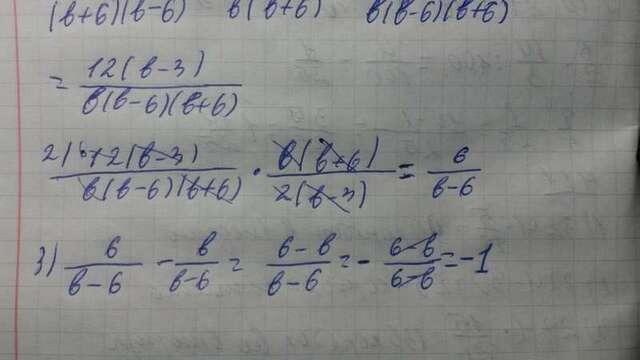 (b+6)(b-6) b(b+6) b(b-6)(b+6)
= 12(b-3) / b(b-6)(b+6)
b(b-6)(b+6) · b(b+6) / 2(b-3) = 6 / b-6
3) 6 / b-6 - b / b-6 = 6-b / b-6 = - 6-b / 6-b = -1